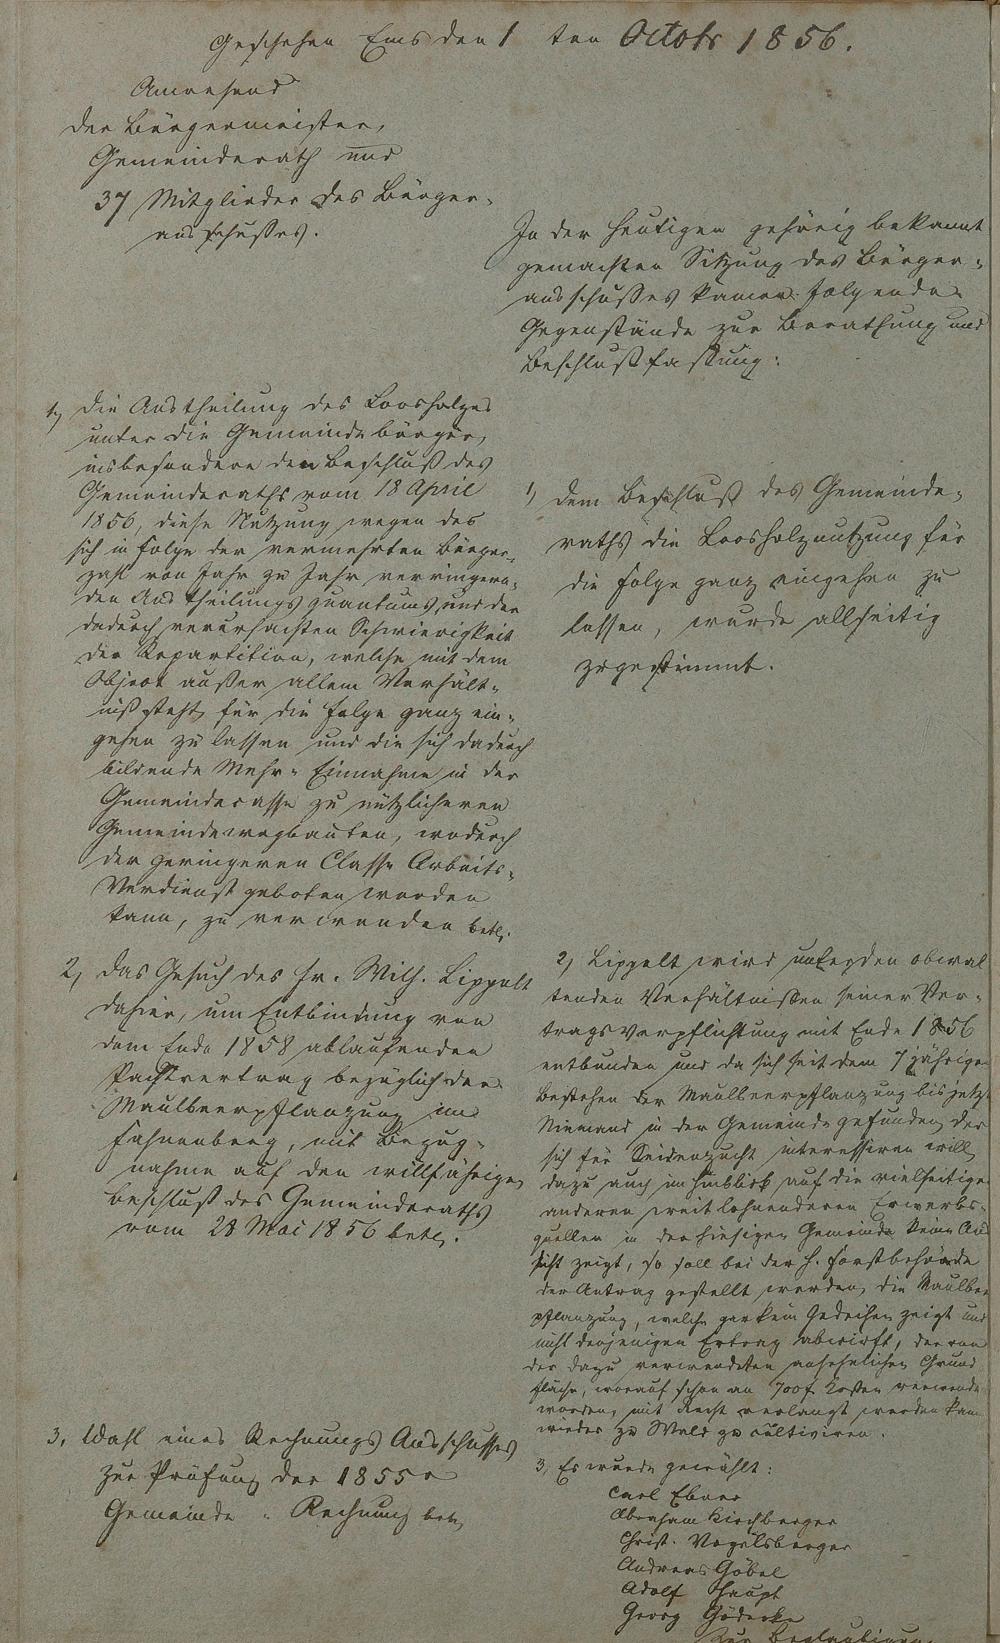 Geschehen Ems den 1 ten Octobr 1856.
Anwesend
der Bürgermeister,
Gemeinderath und
37 Mitglieder des Bürger-
ausschußes.
In der heutigen gehörig bekannt
gemachten Sitzung des Bürger-
ausschußes kamen folgende
Gegenstände zur Berathung und
Beschlußfassung:
1, Die Austheilung des Loosholzes
unter die Gemeindebürger,
insbesondere den Beschluß des
Gemeinderaths vom 18 April
1856, diese Nutzung wegen des
sich in Folge der vermehrten Bürger-
zahl von Jahr zu Jahr verringern-
den Austheilungsquantums und der
dadurch verursachten Schwierigkeit
der Repartition, welche mit dem
Object außer allem Verhält-
niß steht, für die Folge ganz ein-
gehen zu lassen und die sich dadurch
bildende Mehr-Einnahme in der
Gemeindecasse zu nützlicheren
Gemeindewegbauten, wodurch
der geringeren Classe Arbeits-
Verdienst geboten werden
kann, zu verwenden betr.
1, Dem Beschluß des Gemeinde-
raths die Loosholznutzung für
die Folge ganz eingehen zu
lassen, wurde allseitig
zugestimmt.
2, Das Gesuch des Hr. Wilh. Lippelt
dahier, um Entbindung von
dem Ende 1858 ablaufenden
Pachtvertrag bezüglich der
Maulbeerpflanzung im
Fahnenberg, mit Bezug-
nahme auf den willfährigen
Beschluß des Gemeinderaths
vom 28 Mai 1856 betr.
2, Lippelt wird unter den obwal
tenden Verhältnißen seiner Ver-
tragsverpflichtung mit Ende 1856
entbunden und da sich seit dem 7 jährigen
Bestehen der Maulbeerpflanzung bis jetzt
Niemand in der Gemeinde gefunden, der
sich für Seidenzucht interessiren will,
dazu auch im Hinblick auf die vielseitigen
anderen weit lohnenderen Erwerbs-
quellen in der hiesigen Gemeinde keine Aus
sicht zeigt, so soll bei der H. Forstbehörde
der Antrag gestellt werden, die Maulbeer
pflanzung, welche gar kein Gedeihen zeigt und
nicht denjenigen Ertrag abwirft, der von
der dazu verwendeten ansehnlichen Grund
fläche, worauf schon an 700 f Kosten verwendet
worden, mit Recht verlangt werden kann
wieder zu Wald zu cultiviren.
3, Wahl eines Rechnungs Ausschusses
zur Prüfung der 1855r
Gemeinde-Rechnung betr.
3, Es wurde gewählt:
Carl Ebner
Abraham Kirchberger
Christ. Vogelsberger
Andreas Göbel
Adolf Haupt
Georg Gödecke
Zur Beglaubigung